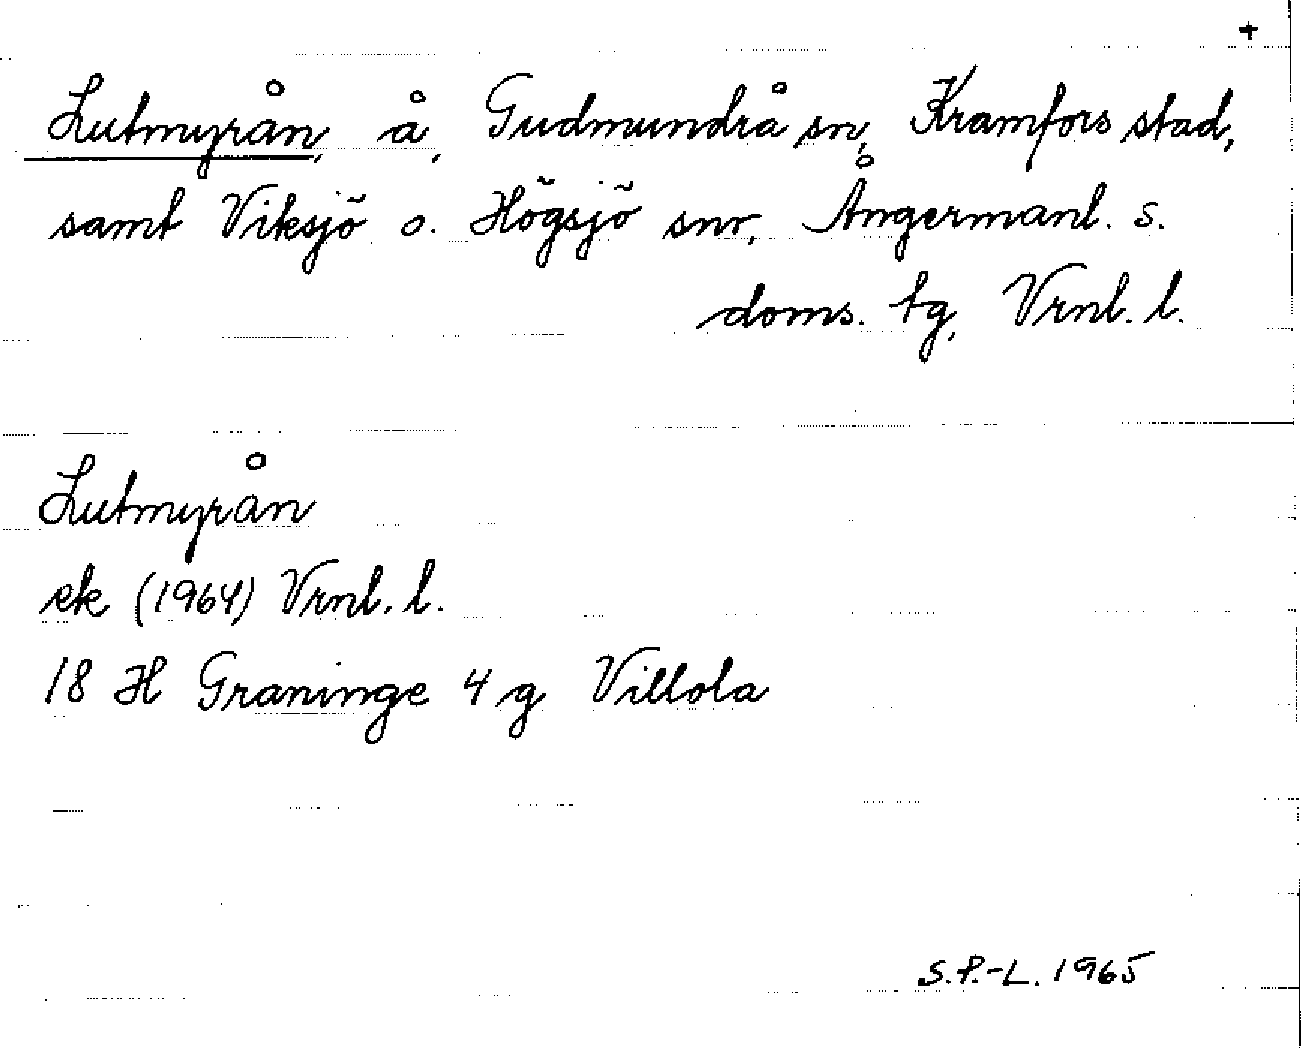 +
Lutmyrån, å, Gudmundrå sn, Kramfors stad,
samt Viksjö o. Högsjö snr, Ångermanl. s.
doms. tg, Vrnl. l.
Lutmyrån
ek (1964) Vrnl. l.
18 H Graninge 4 g Villola
S.P.-L. 1965